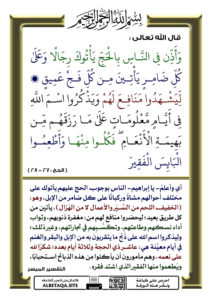 بسم الله الرحمن الرحيم
قال الله تعالى :
وَأَذِّن فِي النَّاسِ بِالْحَجِّ يَأْتُوكَ رِجَالًا وَعَلَىٰ
كُلِّ ضَامِرٍ يَأْتِينَ مِن كُلِّ فَجٍّ عَمِيقٍ
لِّيَشْهَدُوا مَنَافِعَ لَهُمْ وَيَذْكُرُوا اسْمَ اللَّهِ
فِي أَيَّامٍ مَّعْلُومَاتٍ عَلَىٰ مَا رَزَقَهُم مِّن
بَهِيمَةِ الْأَنْعَامِ فَكُلُوا مِنْهَا وَأَطْعِمُوا
الْبَائِسَ الْفَقِيرَ
(الحج: ٢٧ - ٢٨)
أي وأعلم - يا إبراهيم - الناس بوجوب الحج عليهم يأتوك على
مختلف أحوالهم مشاةً وركبانًا على كل ضامر من الإبل، وهو:
(الخفيف اللحم من السير والأعمال لا من الهزال)، يأتين من
كل طريق بعيد؛ ليحضروا منافع لهم من: مغفرة ذنوبهم، وثواب
أداء نسكهم وطاعتهم، وتكسبهم في تجاراتهم، وغير ذلك؛
وليذكروا اسم الله على ذبح ما يتقربون به من الإبل والبقر والغنم
في أيام معينة هي: عاشر ذي الحجة وثلاثة أيام بعده؛ شكرًا لله
على نعمه، وهم مأمورون أن يأكلوا من هذه الذبائح استحبابًا،
ويطعموا منها الفقير الذي اشتد فقره.
التفسير الميسر
ALBETAQA.SITE